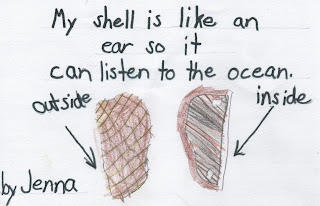 My shell is like an
ear so it
can listen to the ocean.
outside
inside
by Jenna